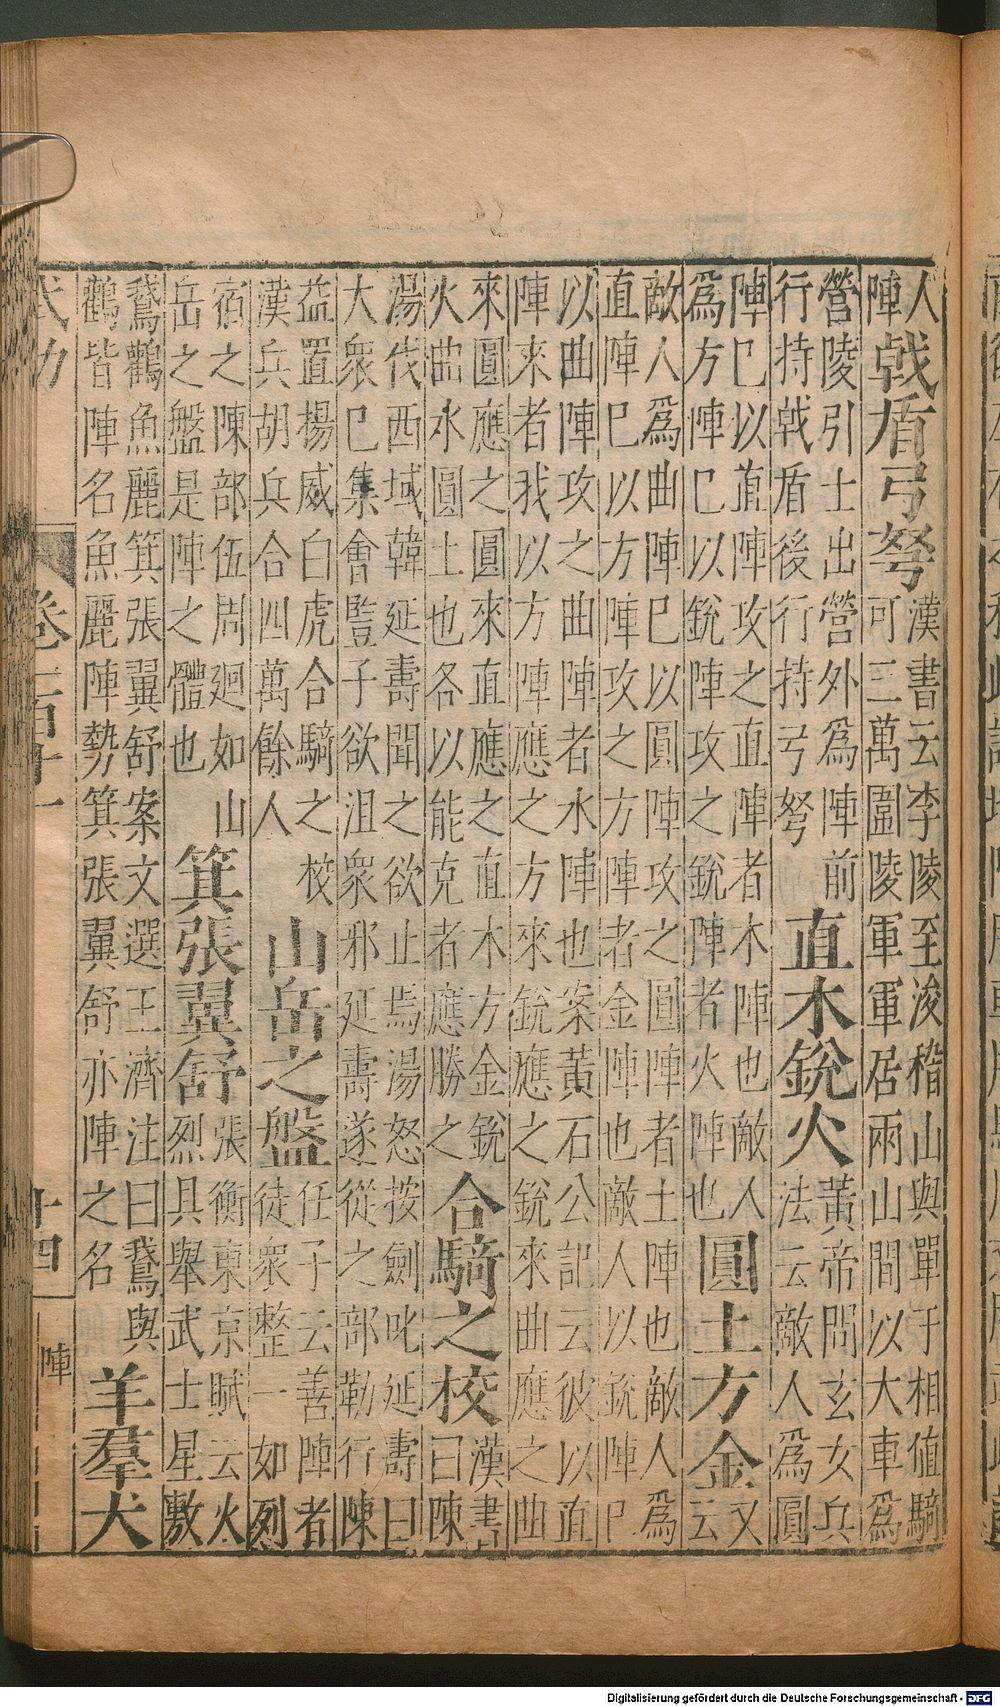 人
陣
戟盾弓弩
漢書云李陵至浚稽山與單于相值騎
可三萬圍陵軍軍居兩山間以大車為
營陵引士出營外為陣前
行持戟盾後行持弓弩
直木銳火
黃帝問玄女兵
法云敵人為圓
陣巳以直陣攻之直陣者木陣也敵人
為方陣巳以銳陣攻之銳陣者火陣也
圓土方金
又
云
敵人為曲陣巳以圓陣攻之圓陣者土陣也敵人為
直陣巳以方陣攻之方陣者金陣也敵人以銳陣巳
以曲陣攻之曲陣者水陣也案黃石公記云彼以直
陣來者我以方陣應之方來銳應之銳來曲應之曲
來圓應之圓來直應之直木方金銳
火曲水圓土也各以能克者應勝之
合騎之校
漢書
曰陳
湯伐西域韓延壽聞之欲止焉湯怒按劍叱延壽曰
大衆巳集會豎子欲沮衆邪延壽遂從之部勒行陳
益置揚威白虎合騎之校
漢兵胡兵合四萬餘人
山岳之盤
任子云善陣者
徒衆整一如列
宿之陳部伍周廻如山
岳之盤是陣之體也
箕張翼舒
張衡東京賦云火
烈具舉武士星敷
鵞鸛魚麗箕張翼舒案文選王濟注曰鵞與
鸛皆陣名魚麗陣勢箕張翼舒亦陣之名
羊羣犬
武功 卷二百十一 十四 陣
Digitalisierung gefördert durch die Deutsche Forschungsgemeinschaft - DFG